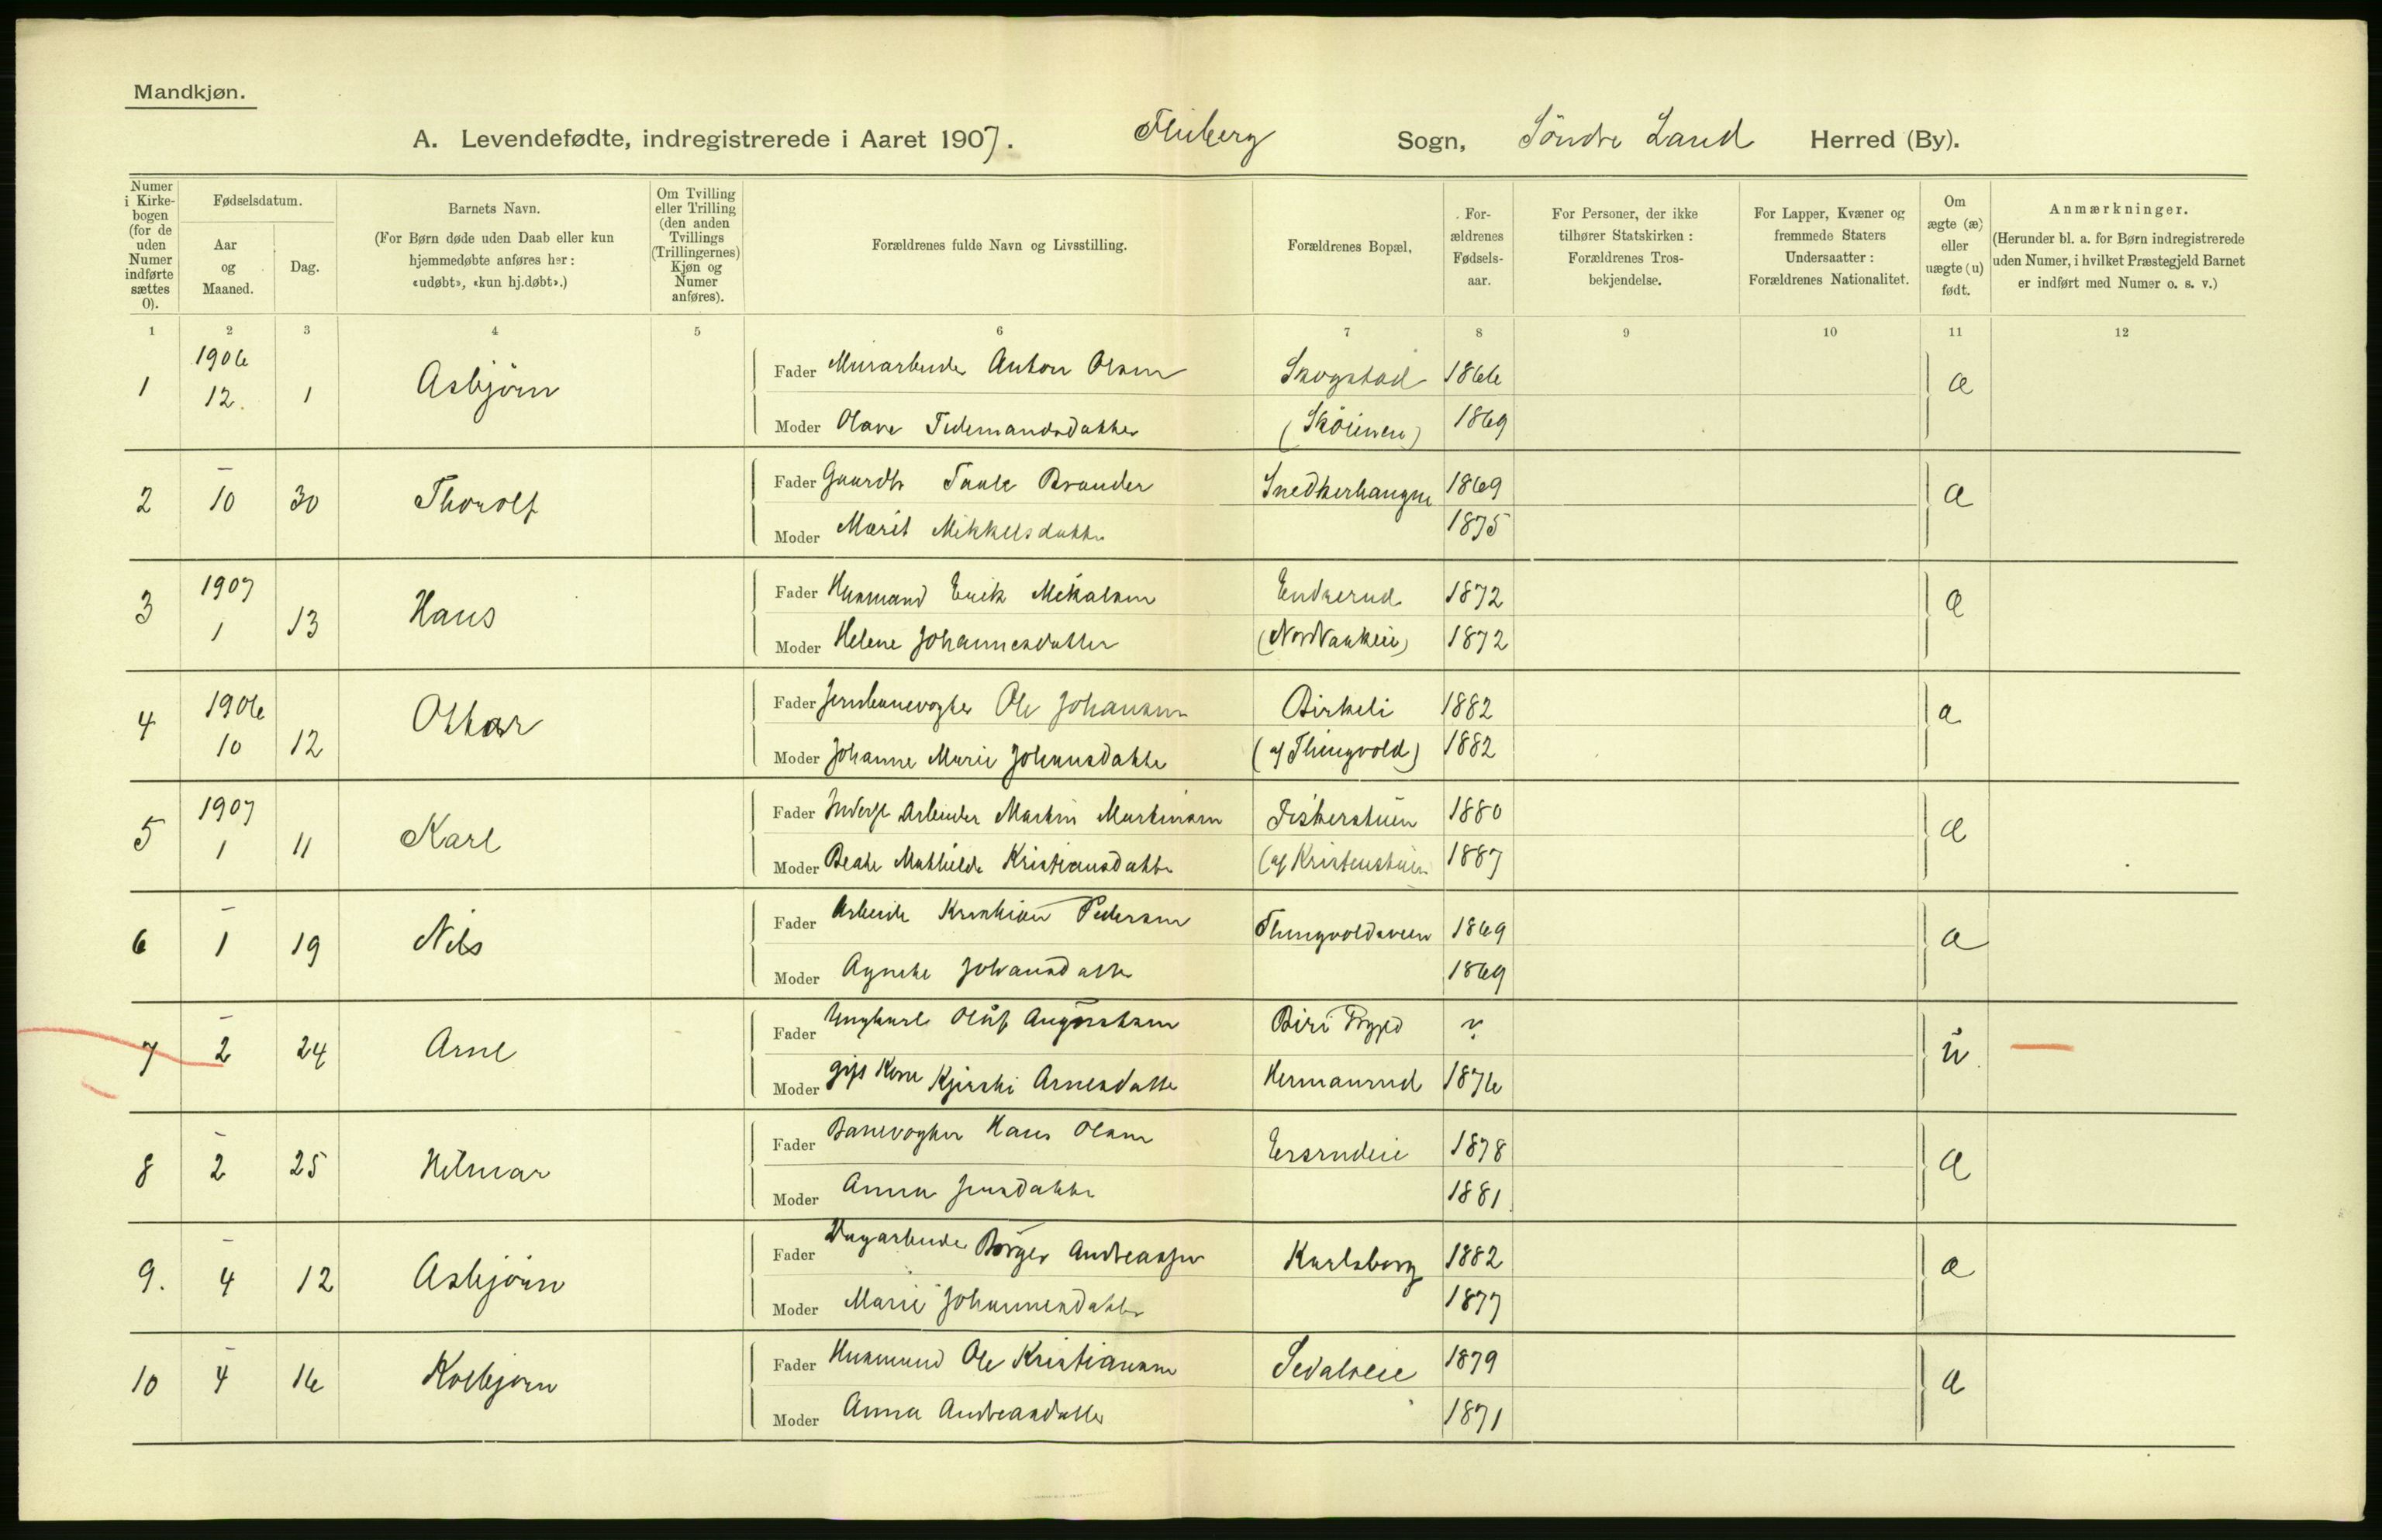 Mandkjøn.
A. Levendefødte, indregistrerede i Aaret 1907. Fluberg Sogn, Söndre Land Herred (By).
Numer i Kirkebogen (for de uden Numer indførte sættes 0).
Fødselsdatum.
Aar og Maaned.
Dag.
Barnets Navn.
(For Børn døde uden Daab eller kun hjemmedøbte anføres her: «udøbt», «kun hj.døbt».)
Om Tvilling eller Trilling (den anden Tvillings (Trillingernes) Kjøn og Numer anføres).
Forældrenes fulde Navn og Livsstilling.
Forældrenes Bopæl.
Forældrenes Fødselsaar.
For Personer, der ikke tilhører Statskirken: Forældrenes Trosbekjendelse.
For Lapper, Kvæner og fremmede Staters Undersaatter: Forældrenes Nationalitet.
Om ægte (æ) eller uægte (u) født.
Anmærkninger.
(Herunder bl. a. for Børn indregistrerede uden Numer, i hvilket Præstegjeld Barnet er indført med Numer o. s. v.)
1 2 3 4 5 6 7 8 9 10 11 12
1 1906 12. 1 Asbjörn Fader Murarbeider Anton Olsen Skogstad 1866 æ
Moder Olave Tidemandsdatter (Sköienen) 1869
2 – 10 30 Thorolf Fader Gaardbr Brander Snedkerhaugen 1869 æ
Moder Marit Mikkelsdatter 1875
3 1907 1 13 Hans Fader Husmand Erik Mikalsen Endrerud 1872 æ
Moder Helene Johannesdatter 1872
4 1906 10 12 Ottar Fader Jernbanevogter Ole Johansen Birkeli 1882 æ
Moder Johanne Marie Johansdatter (af Thingvold) 1882
5 1907 1 11 Karl Fader Inderst Arbeider Martin Martinsen Fiskerstuen 1880 æ
Moder Beate Mathilde Kristiansdatter (af Kristenstuen 1887
6 – 1 19 Nils Fader Arbeider Kristian Pedersen Thingvoldsveen 1869 æ
Moder Agnethe Johansdatter 1869
7 – 2 24 Arne Fader Ungkarl Oluf Augustsen Biri Prgjld ? u
Moder gift Kone Kjersti Arnesdatter Hermanrud 1876
8 – 2 25 Hilmar Fader Banevogter Hans Olsen Ersrudeie 1878 æ
Moder Anna Jensdatter 1881
9. – 4 12 Asbjörn Fader Dagarbeider Börger Andreassen Karlsborg 1882 æ
Moder Marie Johannesdatter 1877
10 – 4 16 Kolbjørn Fader Husmand Ole Kristiansen 1879 æ
Moder Anna Andreasdatter 1871